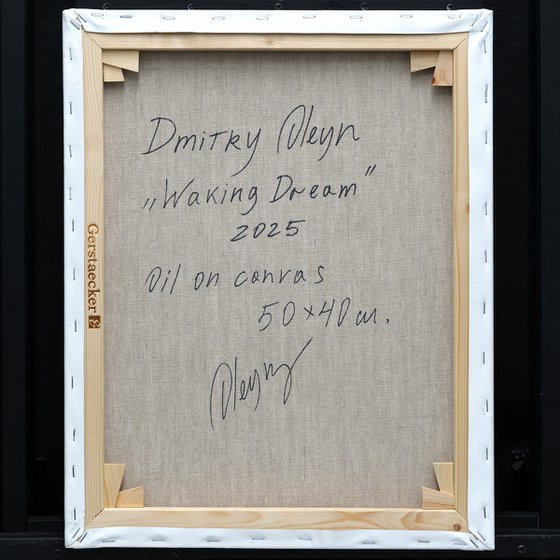 Dmitry Oleyn
„Waking Dream"
2025
Oil on canvas
50×40 cm.
Oleyn
Gerstaecker